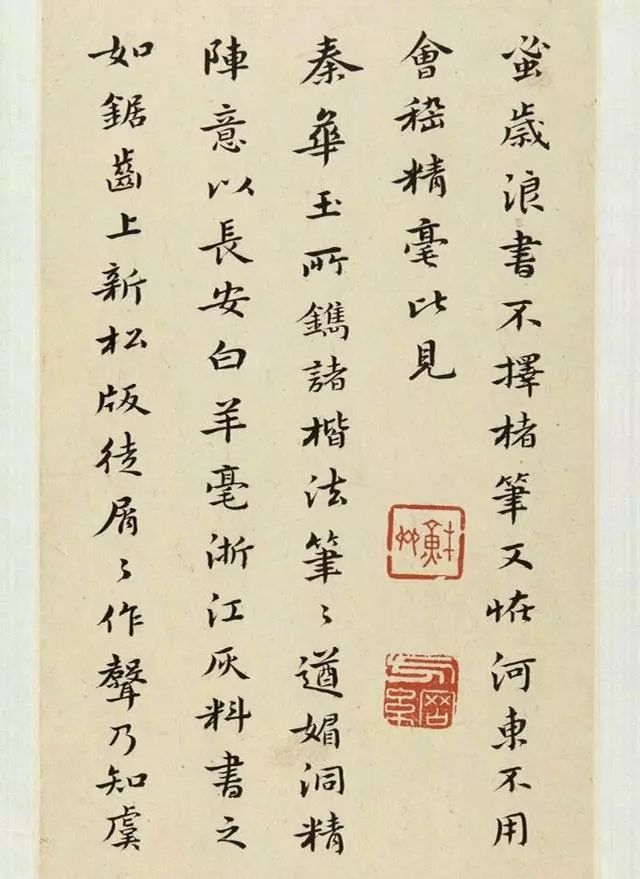 蚤歲浪書不擇楮筆又恠河東不用
會稽精毫比見
秦華玉所鐫諸楷法筆〻遒媚洞精
陣意以長安白羊毫浙江灰料書之
如鋸齒上新松版徒屑〻作聲乃知虞